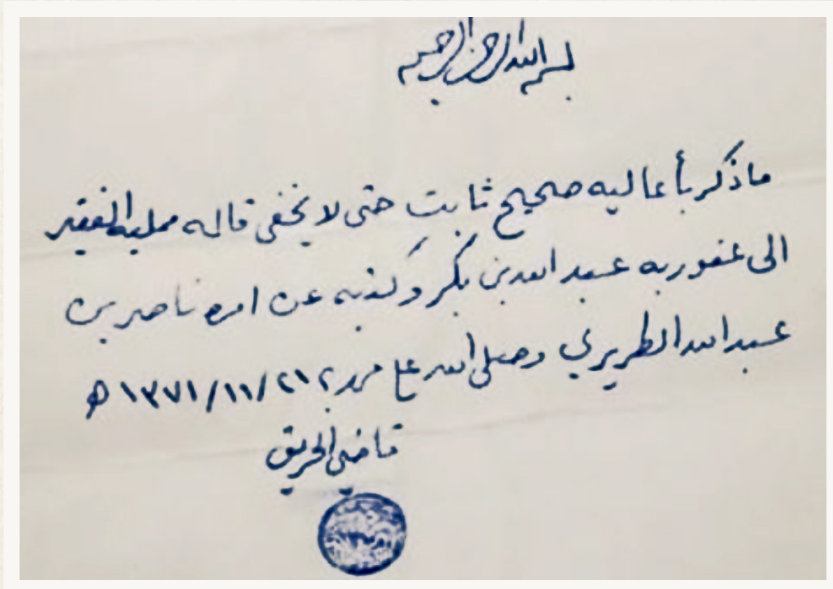 بسم الله الرحمن الرحيم
ما ذكر بأعاليه صحيح ثابت حتى لا يخفى قاله ممليه الفقير
الى عفو ربه عبد الله بن بكر وكتبه عن امره ناصر بن
عبد الله الطريري وصلى الله على محمد ٢١/١١/١٣٧١ ه
قاضي الحريق